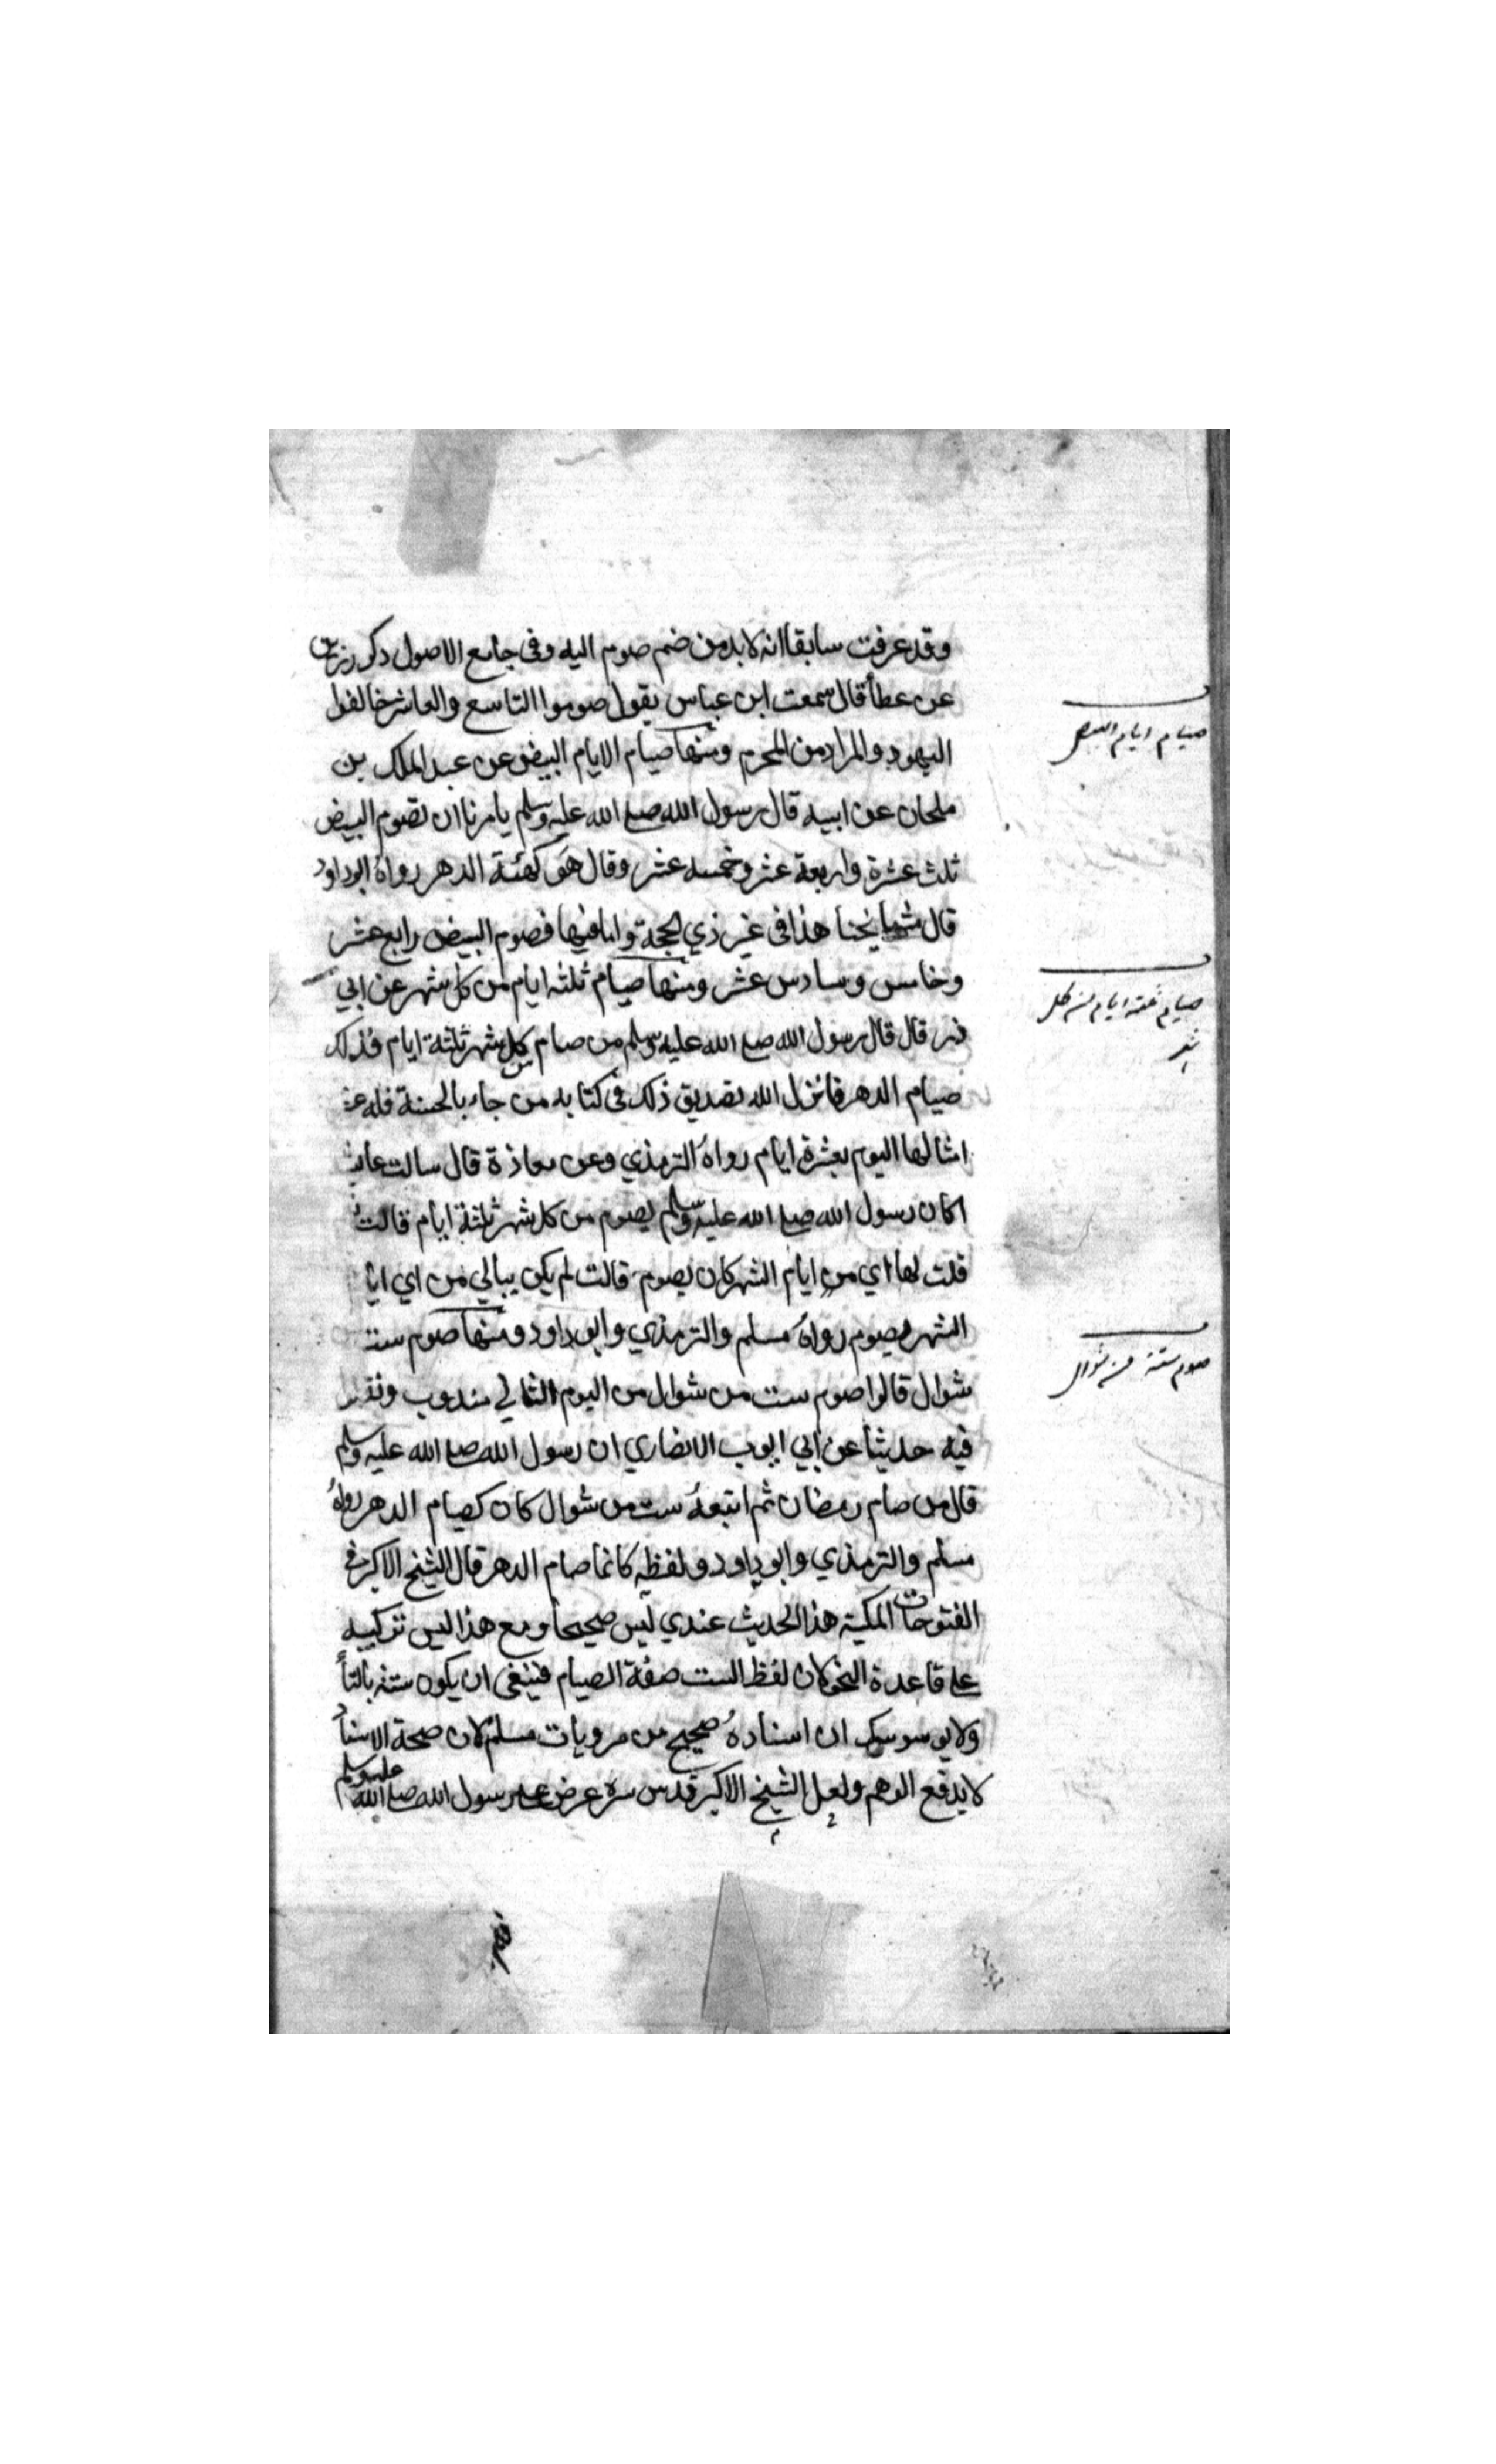 وقد عرفت سابقا انه لابد من ضم صوم اليه وفى جامع الاصول ذكر رزين
عن عطأ قال سمعت ابن عباس يقول صوموا التاسع والعاشر خالفوا
اليهود والمراد من المحرم ومنها صيام الايام البيض عن عبد الملك بن
ملحان عن ابيه قال رسول الله صلع الله عليه وسلم يامرنا ان نصوم البيض
ثلث عشرة واربعة عشر وخمسة عشر وقال هو كهئة الدهر رواه ابو داود
قال مشايخنا هذا فى غير ذي الحجة واما فيها فصوم البيض رابع عشر
وخامس وسادس عشر ومنها صيام ثلثه ايام من كل شهر عن ابي
ذر قال قال رسول الله صلع الله عليه وسلم من صام من كل شهر ثلثة ايام فذلك
صيام الدهر فانزل الله تصديق ذلك فى كتابه من جاء بالحسنة فله عشر
امثالها اليوم بعشرة ايام رواه الترمذي وعن معاذة قال سالت عايشة
اكان رسول الله صلع الله عليه وسلم يصوم من كل شهر ثلثة ايام قالت
قلت لها اي من ايام الشهر كان يصوم قالت لم يكن يبالي من اي ايا
الشهر يصوم رواه مسلم والترمذي وابو داود ومنها صوم ستة
شوال قالوا صوم ست من شوال من اليوم الثاني مندوب ونقل
فيه حديثا عن ابي ايوب الانصاري ان رسول الله صلع الله عليه وسلم
قال من صام رمضان ثم اتبعه ست من شوال كان كصيام الدهر رواه
مسلم والترمذي وابو داود ولفظه كانما صام الدهر قال الشيخ الاكبر فى
الفتوحات المكية هذا الحديث عندي ليس صحيحا ومع هذا ليس تركيبه
على قاعدة النحو لان لفظ الست صفة الصيام فينبغى ان يكون ستة بالتأ
ولا يوسوسك ان اسناده صحيح من مرويات مسلم لان صحة الاسناد
لا يدفع الوهم ولعل الشيخ الاكبر قدس سره عرض على رسول الله صلع الله عليه وسلم
صيام ايام البيض
صيام ثلثة ايام من كل
شهر
صوم ستة من شوال